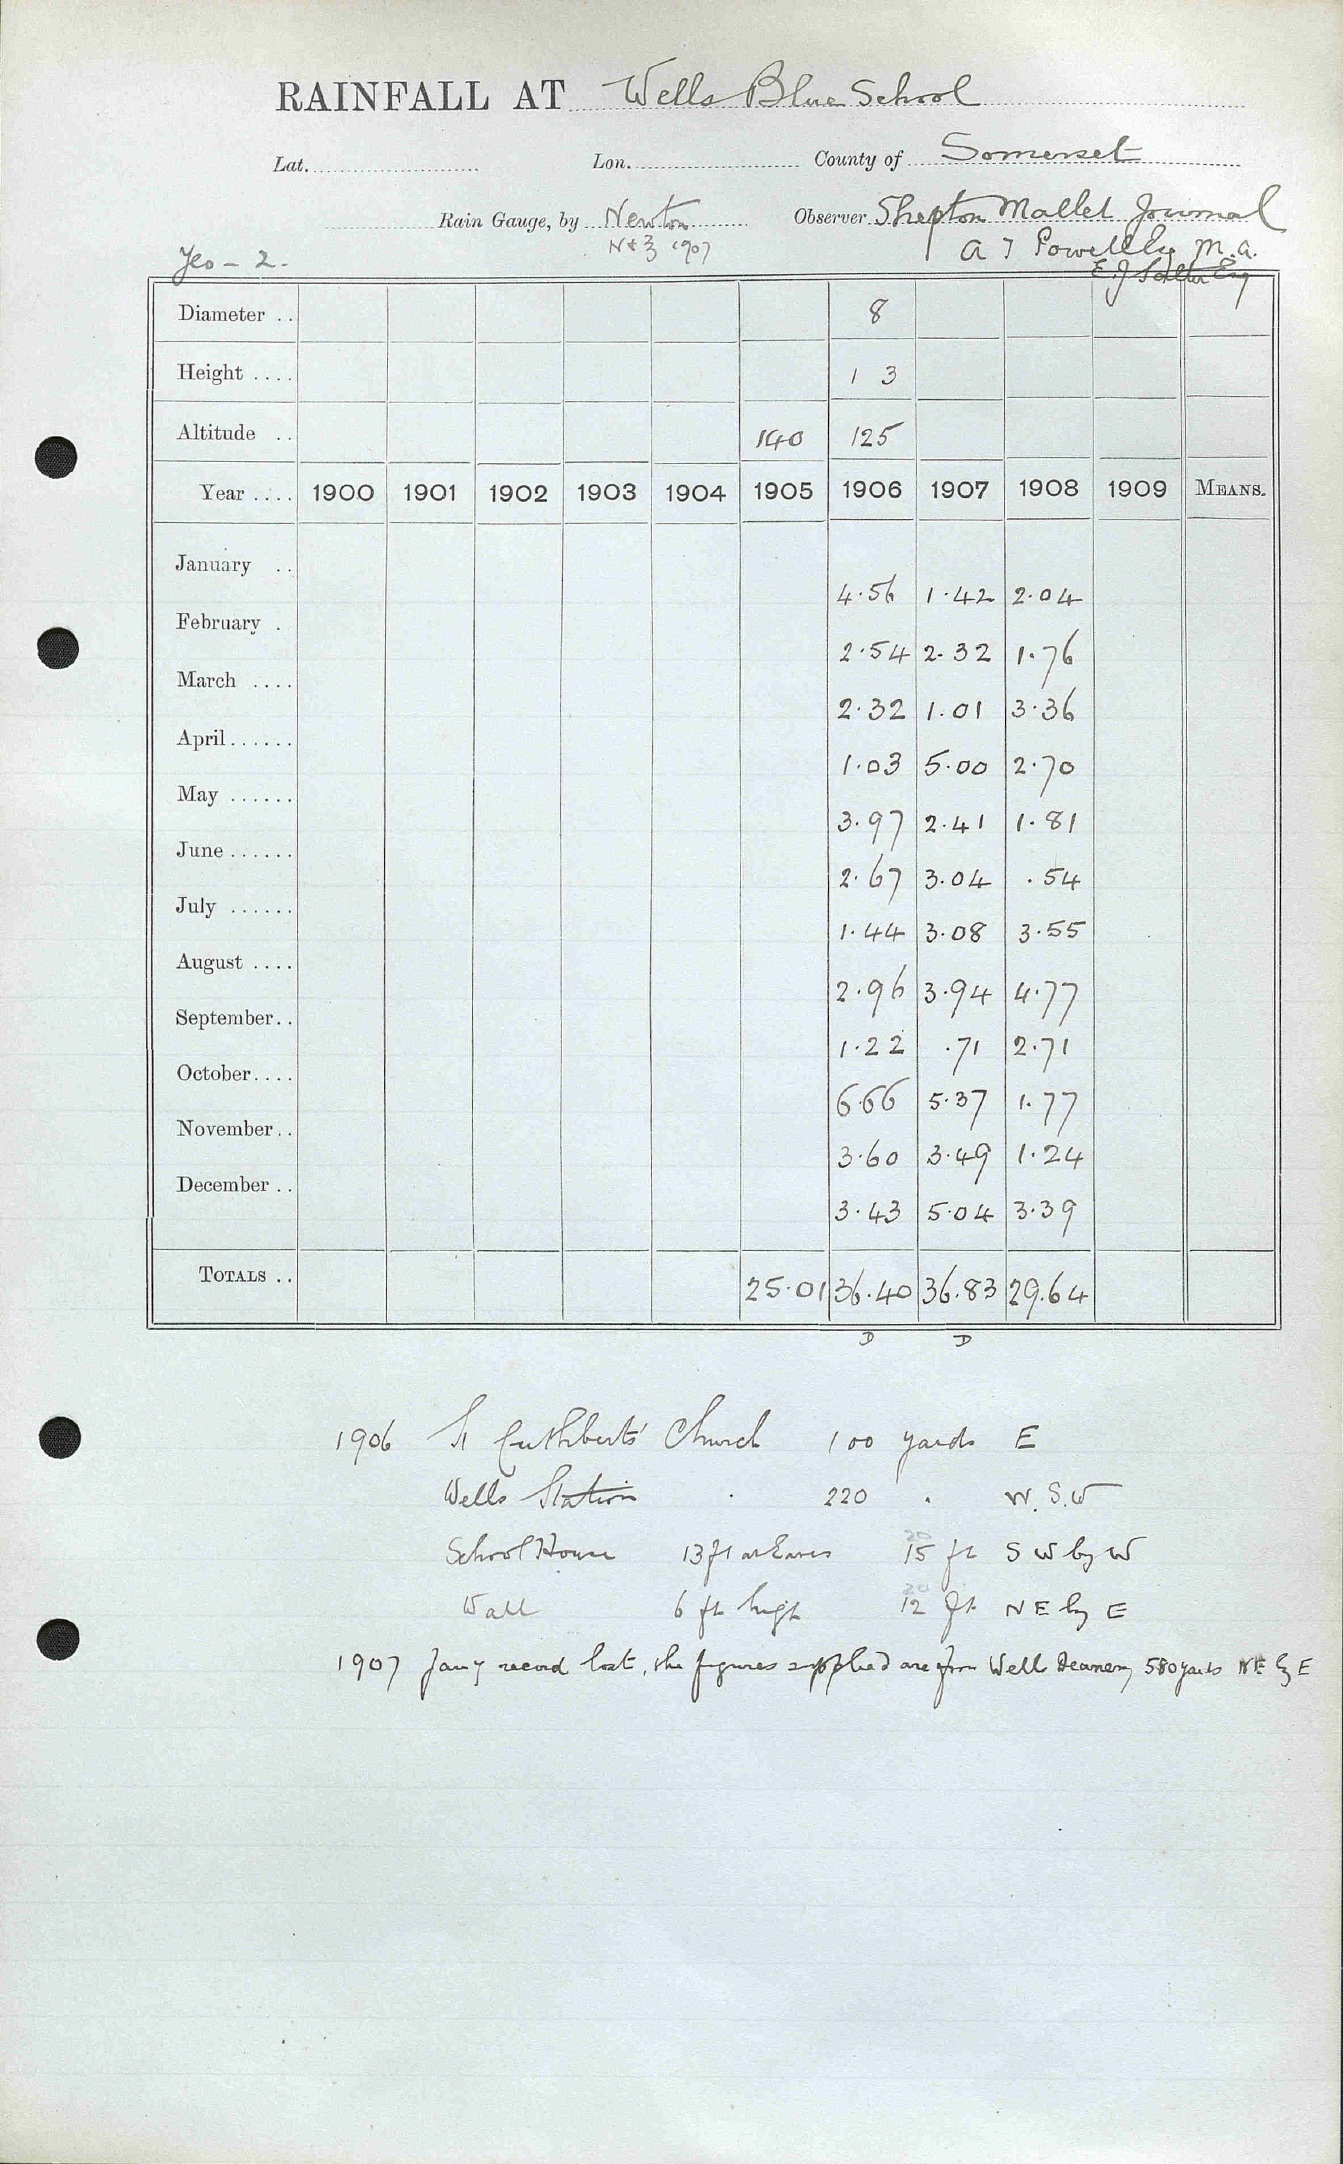 RAINFALL AT Wells Blue School
Lat. Lon. County of Somerset
Rain Gauge, by Newton Observer Shepton Mallet Journal
N & Z 1907 A T Powell M.A.
Yeo - 2. E J Salter Esq
Diameter .. 8
Height .... 1 3
Altitude .. 140 125
Year .... 1900 1901 1902 1903 1904 1905 1906 1907 1908 1909 MEANS.
January ..
4.56 1.42 2.04
February .
2.54 2.32 1.76
March ....
2.32 1.01 3.36
April......
1.03 5.00 2.70
May ......
3.97 2.41 1.81
June......
2.67 3.04 .54
July ......
1.44 3.08 3.55
August ....
2.96 3.94 4.77
September..
1.22 .71 2.71
October....
6.66 5.37 1.77
November..
3.60 3.49 1.24
December ..
3.43 5.04 3.39
TOTALS .. 25.01 36.40 36.83 29.64
D D
1906 St Cuthberts' Church 100 yards E
Wells Station . 220 . W.S.W
School House 13 ft at Eaves 20 15 ft S W by W
Wall 6 ft high 20 12 ft N E by E
1907 Jany record lost, the figures supplied are from Wells Deanery 580 yards NE by E